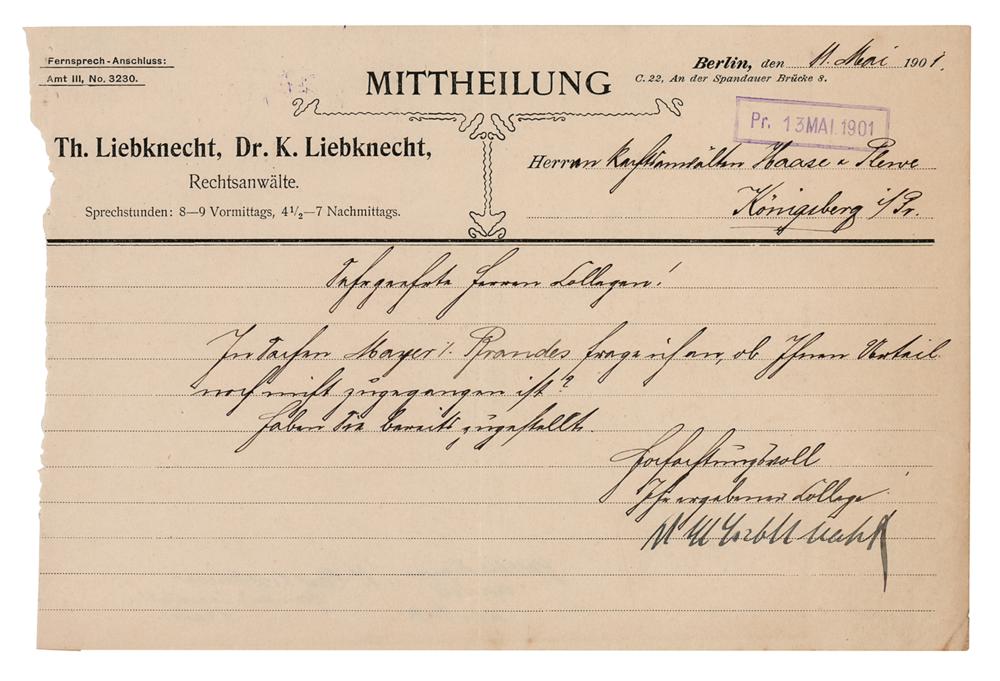 Fernsprech-Anschluss:
Amt III, No. 3230.
MITTHEILUNG
Berlin, den 11. Mai 1901.
C. 22, An der Spandauer Brücke 8.
Pr. 13 MAI. 1901
Th. Liebknecht, Dr. K. Liebknecht,
Rechtsanwälte.
Sprechstunden: 8—9 Vormittags, 4½—7 Nachmittags.
Herren Rechtsanwälten Haase u Plewe
Königsberg i/Pr.
Sehrgeehrte Herren Collegen!
In Sachen Mayer /. Brandes frage ich an, ob Ihnen Urteil
noch nicht zugegangen ist?
Haben Sie bereits zugestellt.
Hochachtungsvoll
Ihr ergebener College
Liebknecht